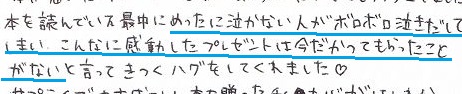 本を読んでいる最中にめったに泣かない人がボロボロ泣きだして
しまい こんなに感動したプレゼントは今だかつてもらったこと
がないと言ってきつくハグをしてくれました♡